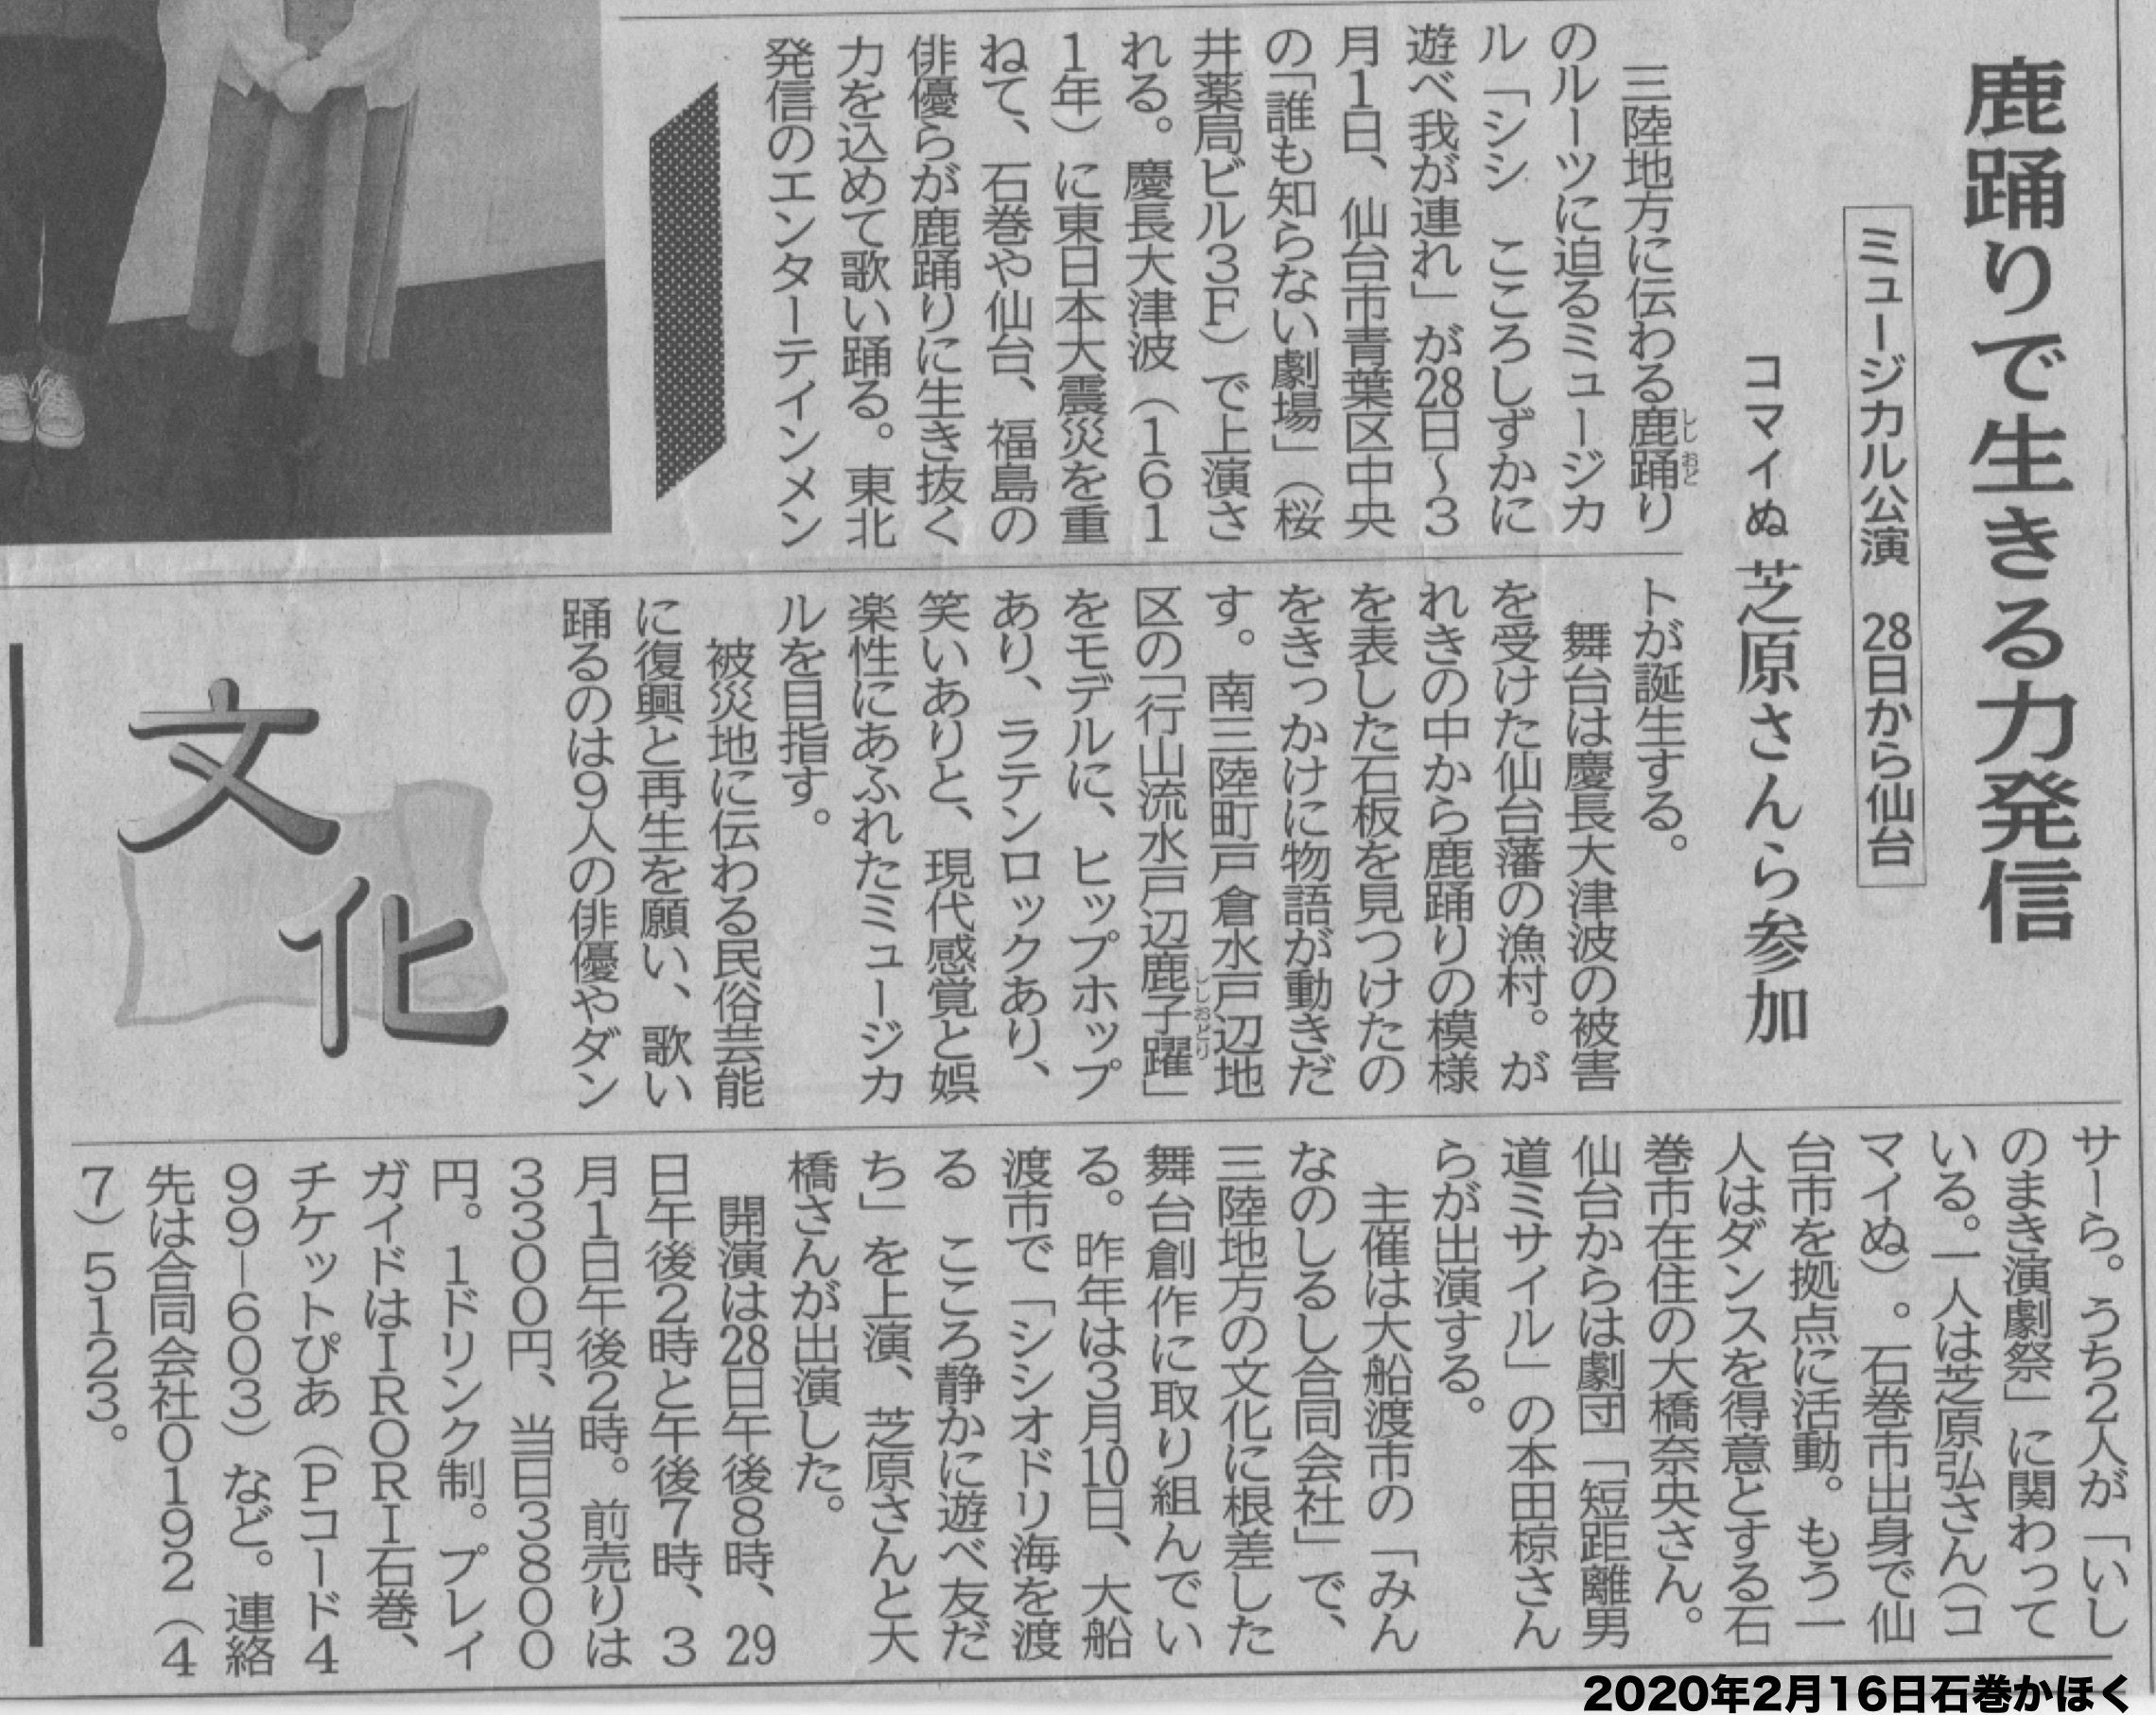 鹿踊りで生きる力発信
ミュージカル公演 28日から仙台
コマイぬ 芝原さんら参加
三陸地方に伝わる鹿踊り
ししおど
のルーツに迫るミュージカ
ル「シシ こころしずかに
遊べ我が連れ」が28日〜3
月1日、仙台市青葉区中央
の「誰も知らない劇場」(桜
井薬局ビル3F)で上演さ
れる。慶長大津波(161
1年)に東日本大震災を重
ねて、石巻や仙台、福島の
俳優らが鹿踊りに生き抜く
力を込めて歌い踊る。東北
発信のエンターテインメン
トが誕生する。
舞台は慶長大津波の被害
を受けた仙台藩の漁村。が
れきの中から鹿踊りの模様
を表した石板を見つけたの
をきっかけに物語が動きだ
す。南三陸町戸倉水戸辺地
区の「行山流水戸辺鹿子躍」
ししおどり
をモデルに、ヒップホップ
あり、ラテンロックあり、
笑いありと、現代感覚と娯
楽性にあふれたミュージカ
ルを目指す。
被災地に伝わる民俗芸能
に復興と再生を願い、歌い
踊るのは9人の俳優やダン
文化
サーら。うち2人が「いし
のまき演劇祭」に関わって
いる。一人は芝原弘さん(コ
マイぬ)。石巻市出身で仙
台市を拠点に活動。もう一
人はダンスを得意とする石
巻市在住の大橋奈央さん。
仙台からは劇団「短距離男
道ミサイル」の本田椋さん
らが出演する。
主催は大船渡市の「みん
なのしるし合同会社」で、
三陸地方の文化に根差した
舞台創作に取り組んでい
る。昨年は3月10日、大船
渡市で「シシオドリ海を渡
る こころ静かに遊べ友だ
ち」を上演、芝原さんと大
橋さんが出演した。
開演は28日午後8時、29
日午後2時と午後7時、3
月1日午後2時。前売りは
3300円、当日3800
円。1ドリンク制。プレイ
ガイドはIRORI石巻、
チケットぴあ(Pコード4
99―603)など。連絡
先は合同会社0192(4
7)5123。
2020年2月16日石巻かほく